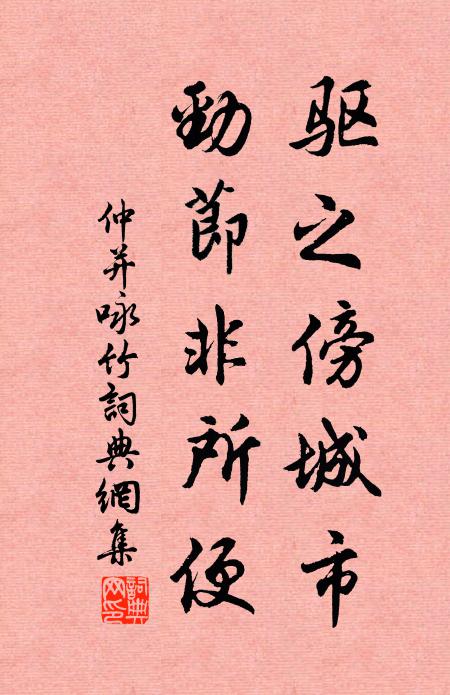 驱之傍城市
勁節非所便
仲并咏竹詞典網集
詞典网印